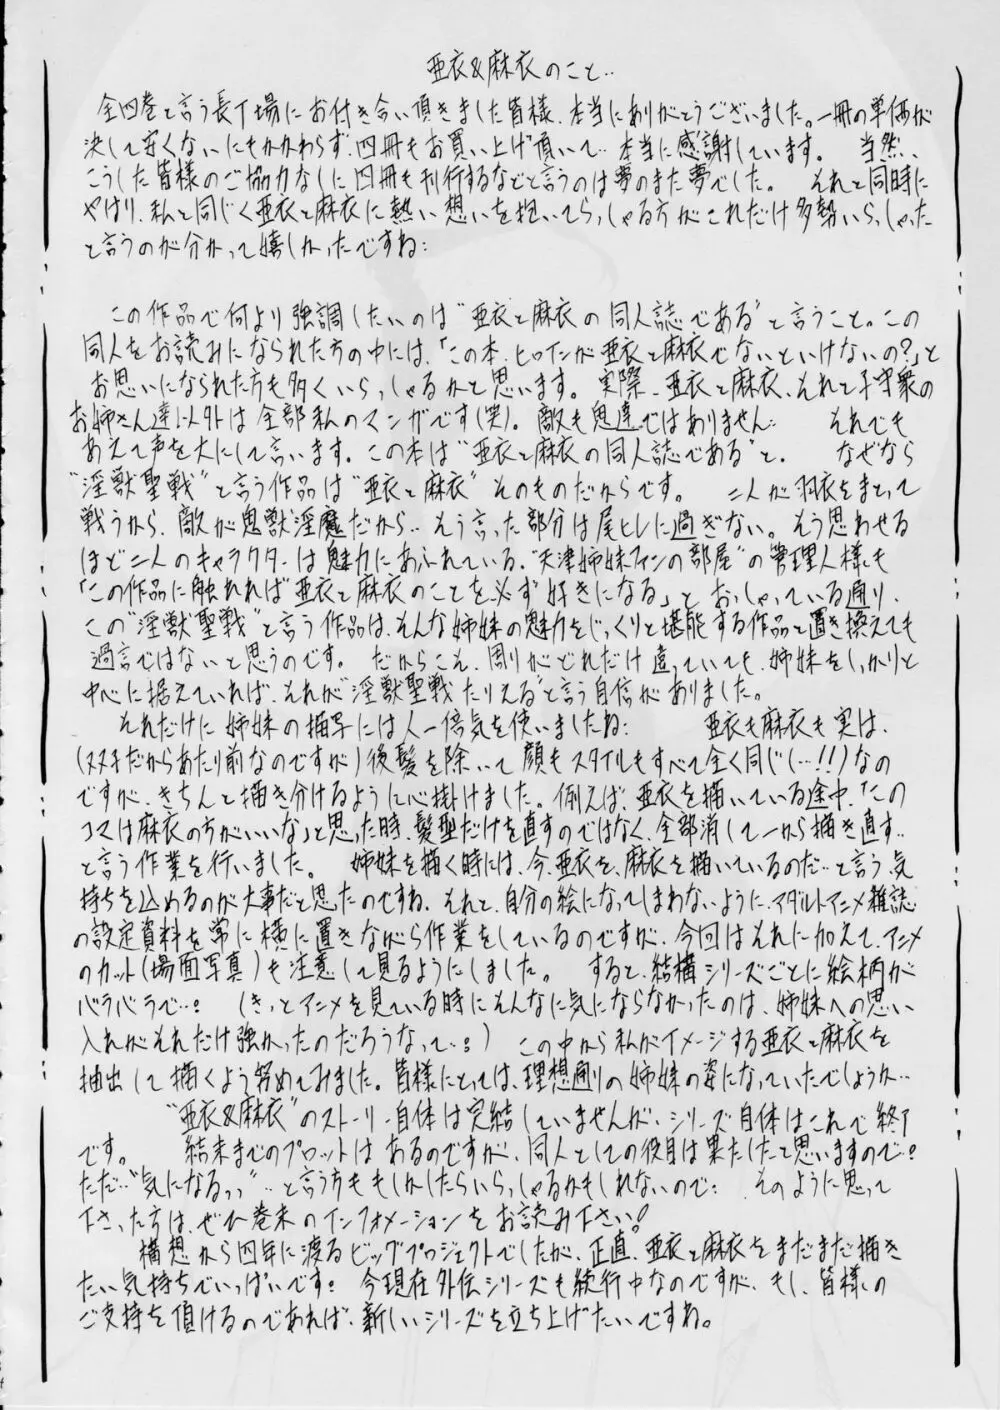 亜衣&麻衣のこと‥
全四巻と言う長丁場にお付き合い頂きました皆様、本当にありがとうございました。一冊の単価が
決して安くないにもかかわらず、四冊もお買い上げ頂いて‥本当に感謝しています。 当然、
こうした皆様のご協力なしに四冊も刊行するなどと言うのは夢のまた夢でした。 それと同時に
やはり、私と同じく亜衣と麻衣に熱い想いを抱いてらっしゃる方がこれだけ多勢いらっしゃった
と言うのが分かって嬉しかったですね:
この作品で何より強調したいのは“亜衣と麻衣の同人誌である”と言うこと。この
同人をお読みになられた方の中には、「この本、ヒロインが亜衣と麻衣でないといけないの?」と
お思いになられた方も多くいらっしゃるかと思います。実際、亜衣と麻衣、それと子守衆の
お姉さん達以外は全部私のマンガです(笑)。敵も鬼達ではありません: それでも
あえて声を大にして言います。この本は“亜衣と麻衣の同人誌である”と. なぜなら
“淫獣聖戦”と言う作品は“亜衣と麻衣”そのものだからです。 二人が羽衣をまとって
戦うから、敵が鬼獣淫魔だから‥そう言った部分は尾ヒレに過ぎない。そう思わせる
ほど二人のキャラクターは魅力にあふれている、“天津姉妹ファンの部屋”の管理人様も
「この作品に触れれば亜衣と麻衣のことを必ず好きになる」とおっしゃっている通り、
この“淫獣聖戦”と言う作品は、そんな姉妹の魅力をじっくりと堪能する作品と置き換えても
過言ではないと思うのです。 だからこそ、周りがどれだけ違っていても、姉妹をしっかりと
中心に据えていれば、それが“淫獣聖戦たりえる”と言う自信がありました。
それだけに姉妹の描写には人一倍気を使いましたね: 亜衣も麻衣も実は、
(双子だからあたり前なのですが)後髪を除いて顔もスタイルもすべて全く同じ(…!!)なの
ですが、きちんと描き分けるように心掛けました。例えば、亜衣を描いている途中、「この
コマは麻衣の方がいいな」と思った時、髪型だけを直すのではなく、全部消して一から描き直す‥
と言う作業を行いました。 姉妹を描く時には、今、亜衣を、麻衣を描いているのだ‥と言う気
持ちを込めるのが大事だと思ったのですね、それと、自分の絵になってしまわないように、アダルトアニメ雑誌
の設定資料を常に横に置きながら作業をしているのですが、今回はそれに加えて、アニメ
のカット(場面写真)も注意して見るようにしました。 すると、結構シリーズごとに絵柄が
バラバラで…。 (きっとアニメを見ている時にそんなに気にならなかったのは、姉妹への思い
入れがそれだけ強かったのだろうなって…。) この中から私がイメージする亜衣と麻衣を
抽出して描くよう努めてみました。皆様にとっては、理想通りの姉妹の姿になっていたでしょうか‥
“亜衣&麻衣”のストーリー自体は完結していませんが、シリーズ自体はこれで終了
です。 結末までのプロットはあるのですが、同人としての役目は果たしたと思いますので…
ただ…“気になるっっ”‥と言う方ももしかしたらいらっしゃるかもしれないので: そのように思って
下さった方は、ぜひ巻末のインフォメーションをお読み下さい!
構想から四年に渡るビッグプロジェクトでしたが、正直、亜衣と麻衣をまだまだ描き
たい気持ちでいっぱいです: 今現在外伝シリーズも続行中なのですが、もし、皆様の
ご支持を頂けるのであれば、新しいシリーズを立ち上げたいですね。